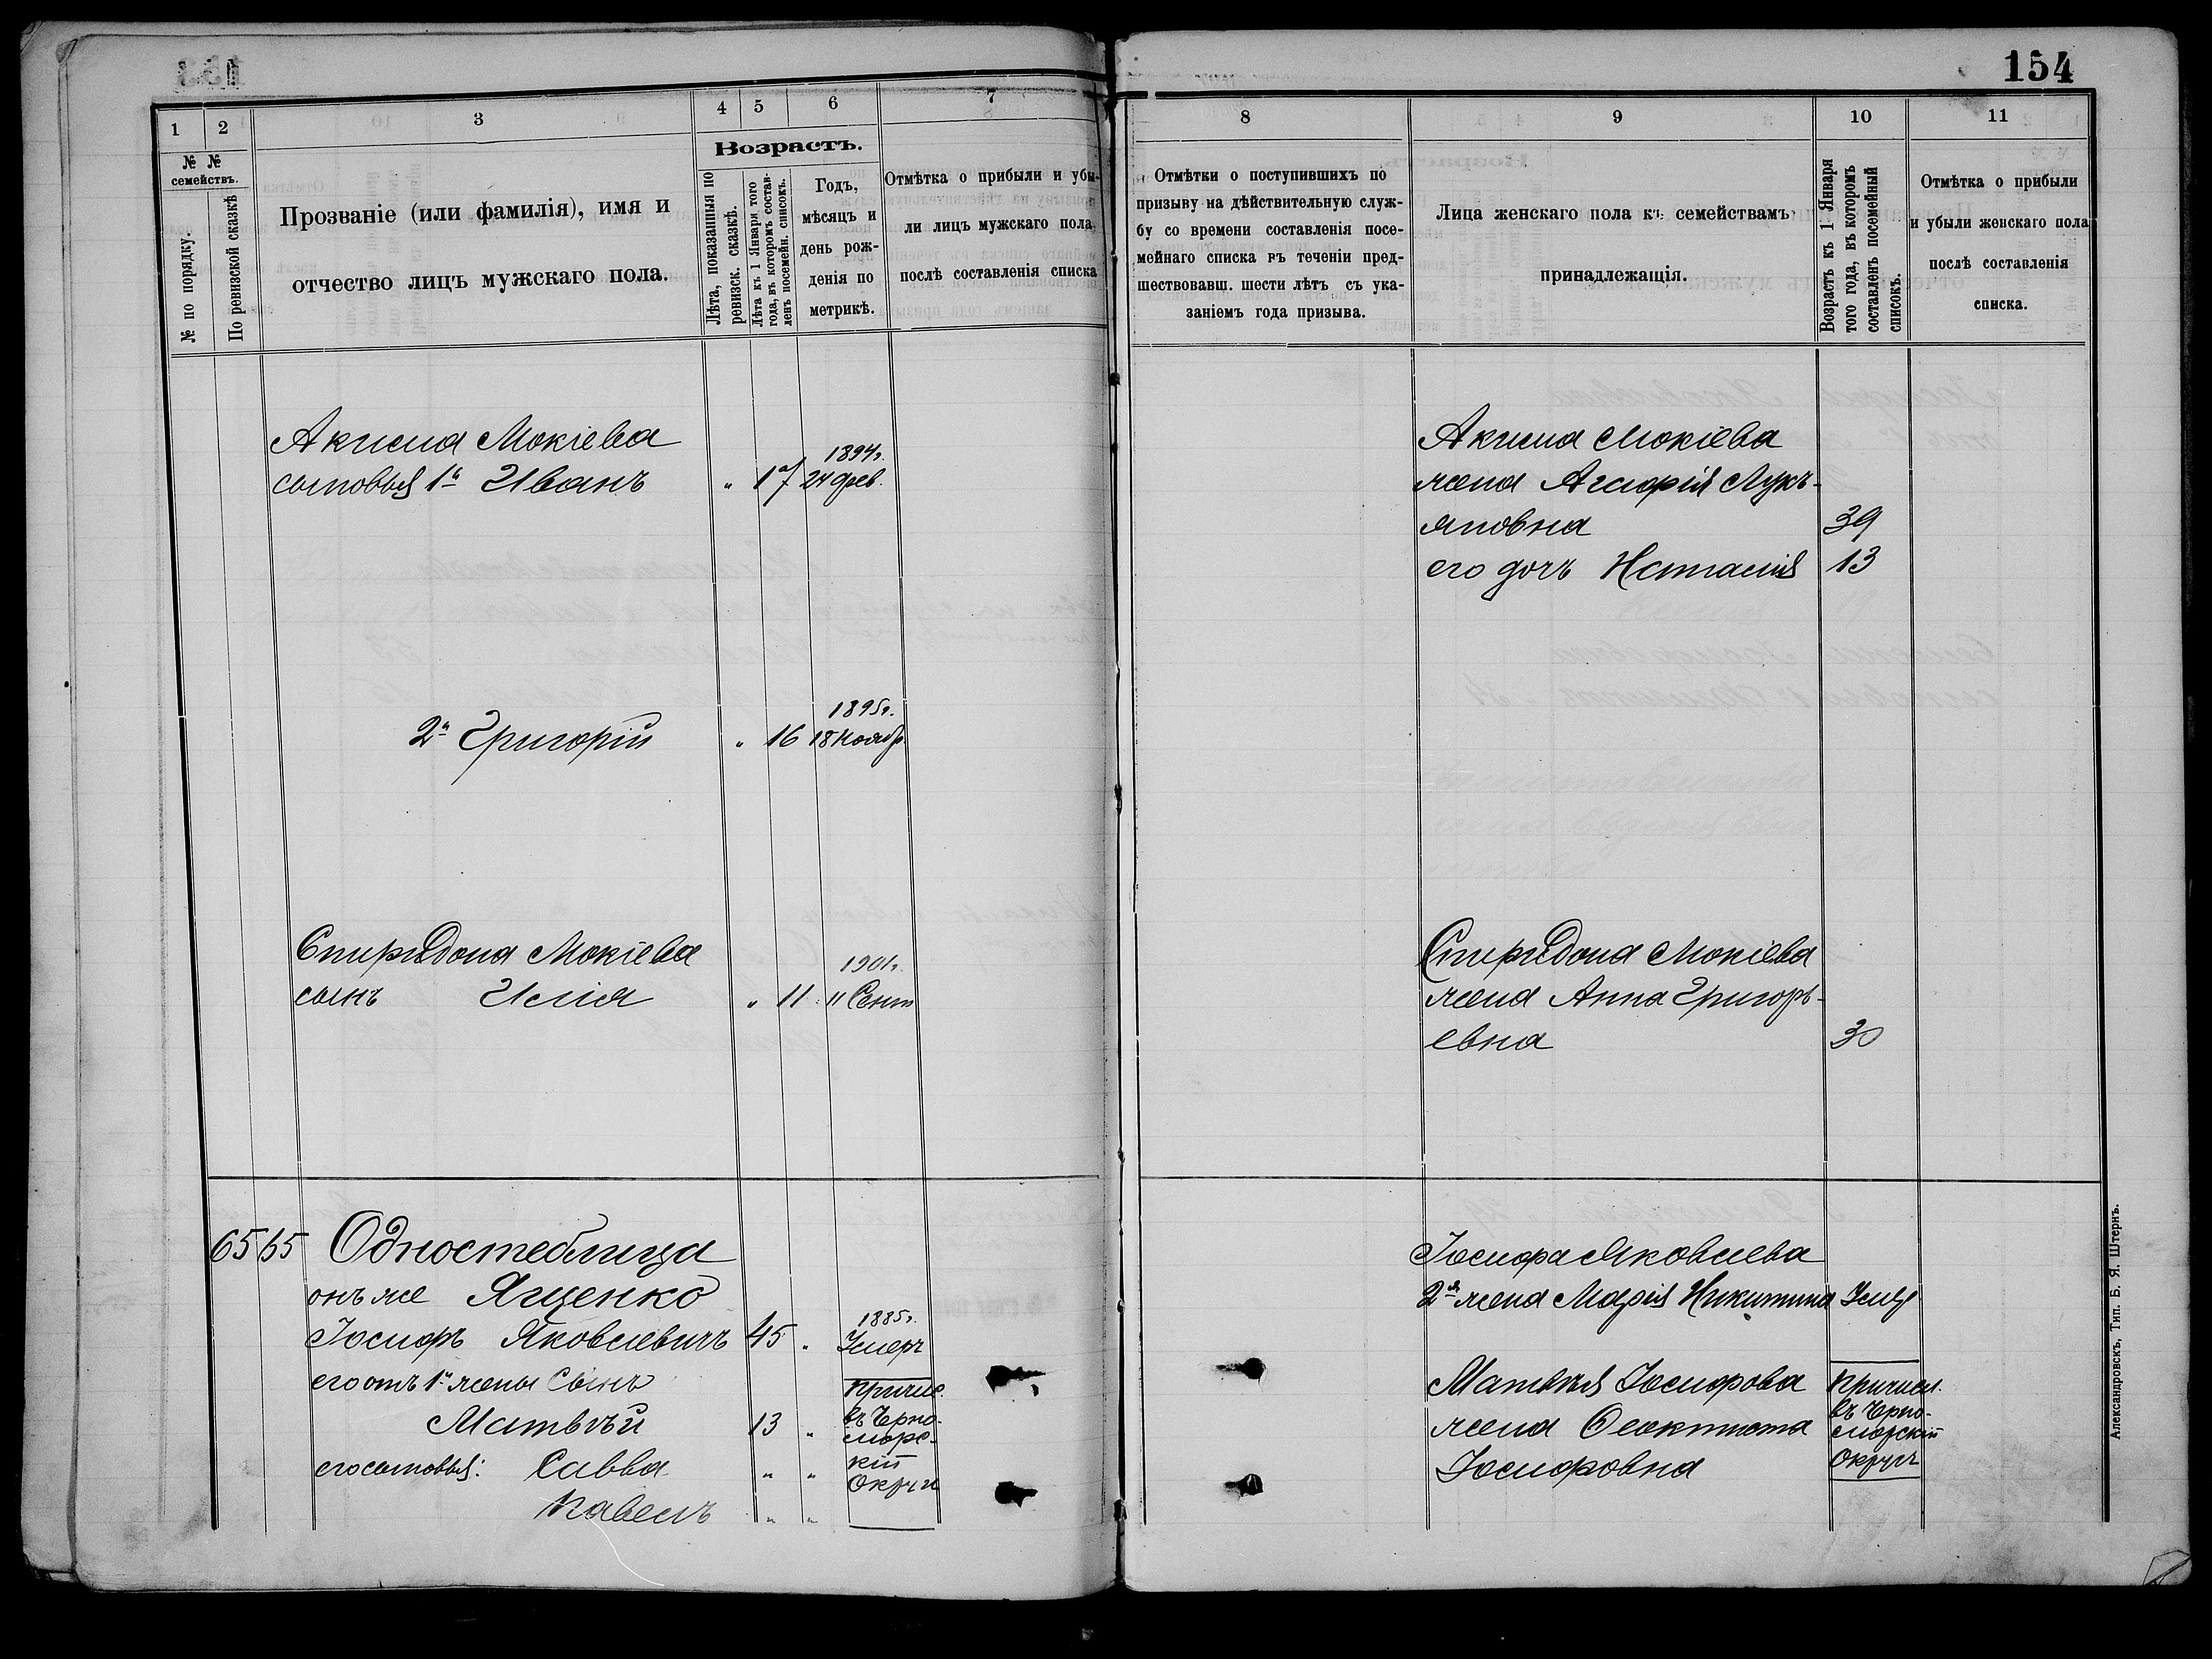 154
1
2
3
4
5
6
7
№ №
семействъ.
№ по порядку.
По ревизской сказкѣ
Прозваніе (или фамилія), имя и
отчество лицъ мужскаго пола.
Возрастъ.
Лѣта, показанныя по
ревизск. сказкѣ.
Лѣта къ 1 Января того
года, въ которомъ состав-
ленъ посемейн. списокъ.
Годъ,
мѣсяцъ и
день рож-
денія по
метрикѣ.
Отмѣтка о прибыли и убы-
ли лицъ мужскаго пола
послѣ составленія списка
Акима Мокіева
сыновья 1й Иванъ " 17 1894г. 24 фев.
2й Григорій " 16 1895г. 18 Ноябр.
Спиридона Мокіева
сынъ Илія " 11 1901г. 11 Сент
65 65 Одностеблица
онъ же Ященко
Іосифъ Яковлевичъ 45 " 1885г. Умеръ
его отъ 1й жены Сынъ
Матвѣй 13 "
его сыновья: Савва " "
Павелъ " "
Причис.
въ Черно-
морс-
кій
Округъ
8
9
10
11
Отмѣтки о поступившихъ по
призыву на дѣйствительную служ-
бу со времени составленія посе-
мейнаго списка въ теченіи пред-
шествовавш. шести лѣтъ съ ука-
заніемъ года призыва.
Лица женскаго пола къ семействамъ
принадлежащія.
Возрастъ къ 1 Января
того года, въ которомъ
составленъ посемейный
списокъ.
Отмѣтка о прибыли
и убыли женскаго пола
послѣ составленія
списка.
Акима Мокіева
жена Агафія Лукъ-
яновна 39
его дочь Наталія 13
Спиридона Мокіева
жена Анна Григорь-
евна 30
Іосифа Яковлева
2я жена Марія Никитина
Матвѣя Іосифова
жена Феоктиста
Іосифовна
Причисл.
въ Черно-
морскій
Округъ
Александровскъ, Тип. Б. Я. Штернъ.